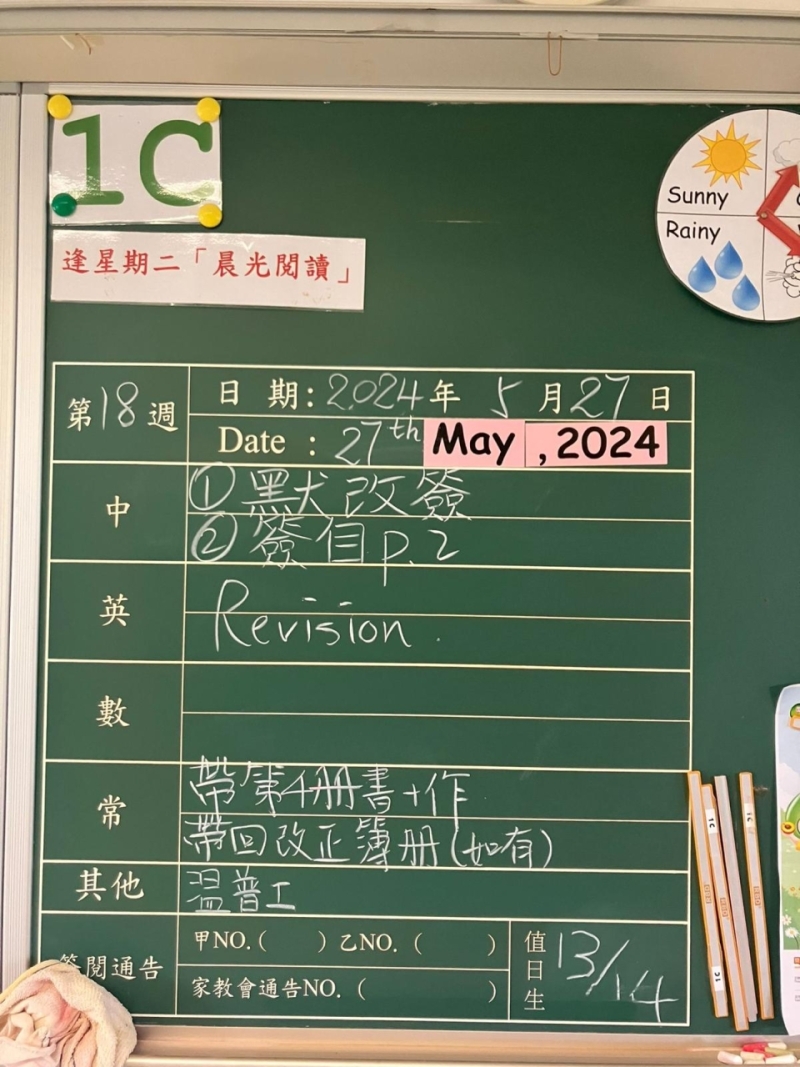 1C
逢星期二「晨光閱讀」
Sunny
Rainy
第18週
日 期: 2024年 5月27日
Date : 27th May , 2024
中
①默改簽
②簽自p.2
英
Revision.
數
常
帶第4册書+作
帶回改正簿册(如有)
其他
温普工
簽閱通告
甲NO.( ) 乙NO. ( )
家教會通告NO. ( )
值日生
13/14
1C
1C
1C